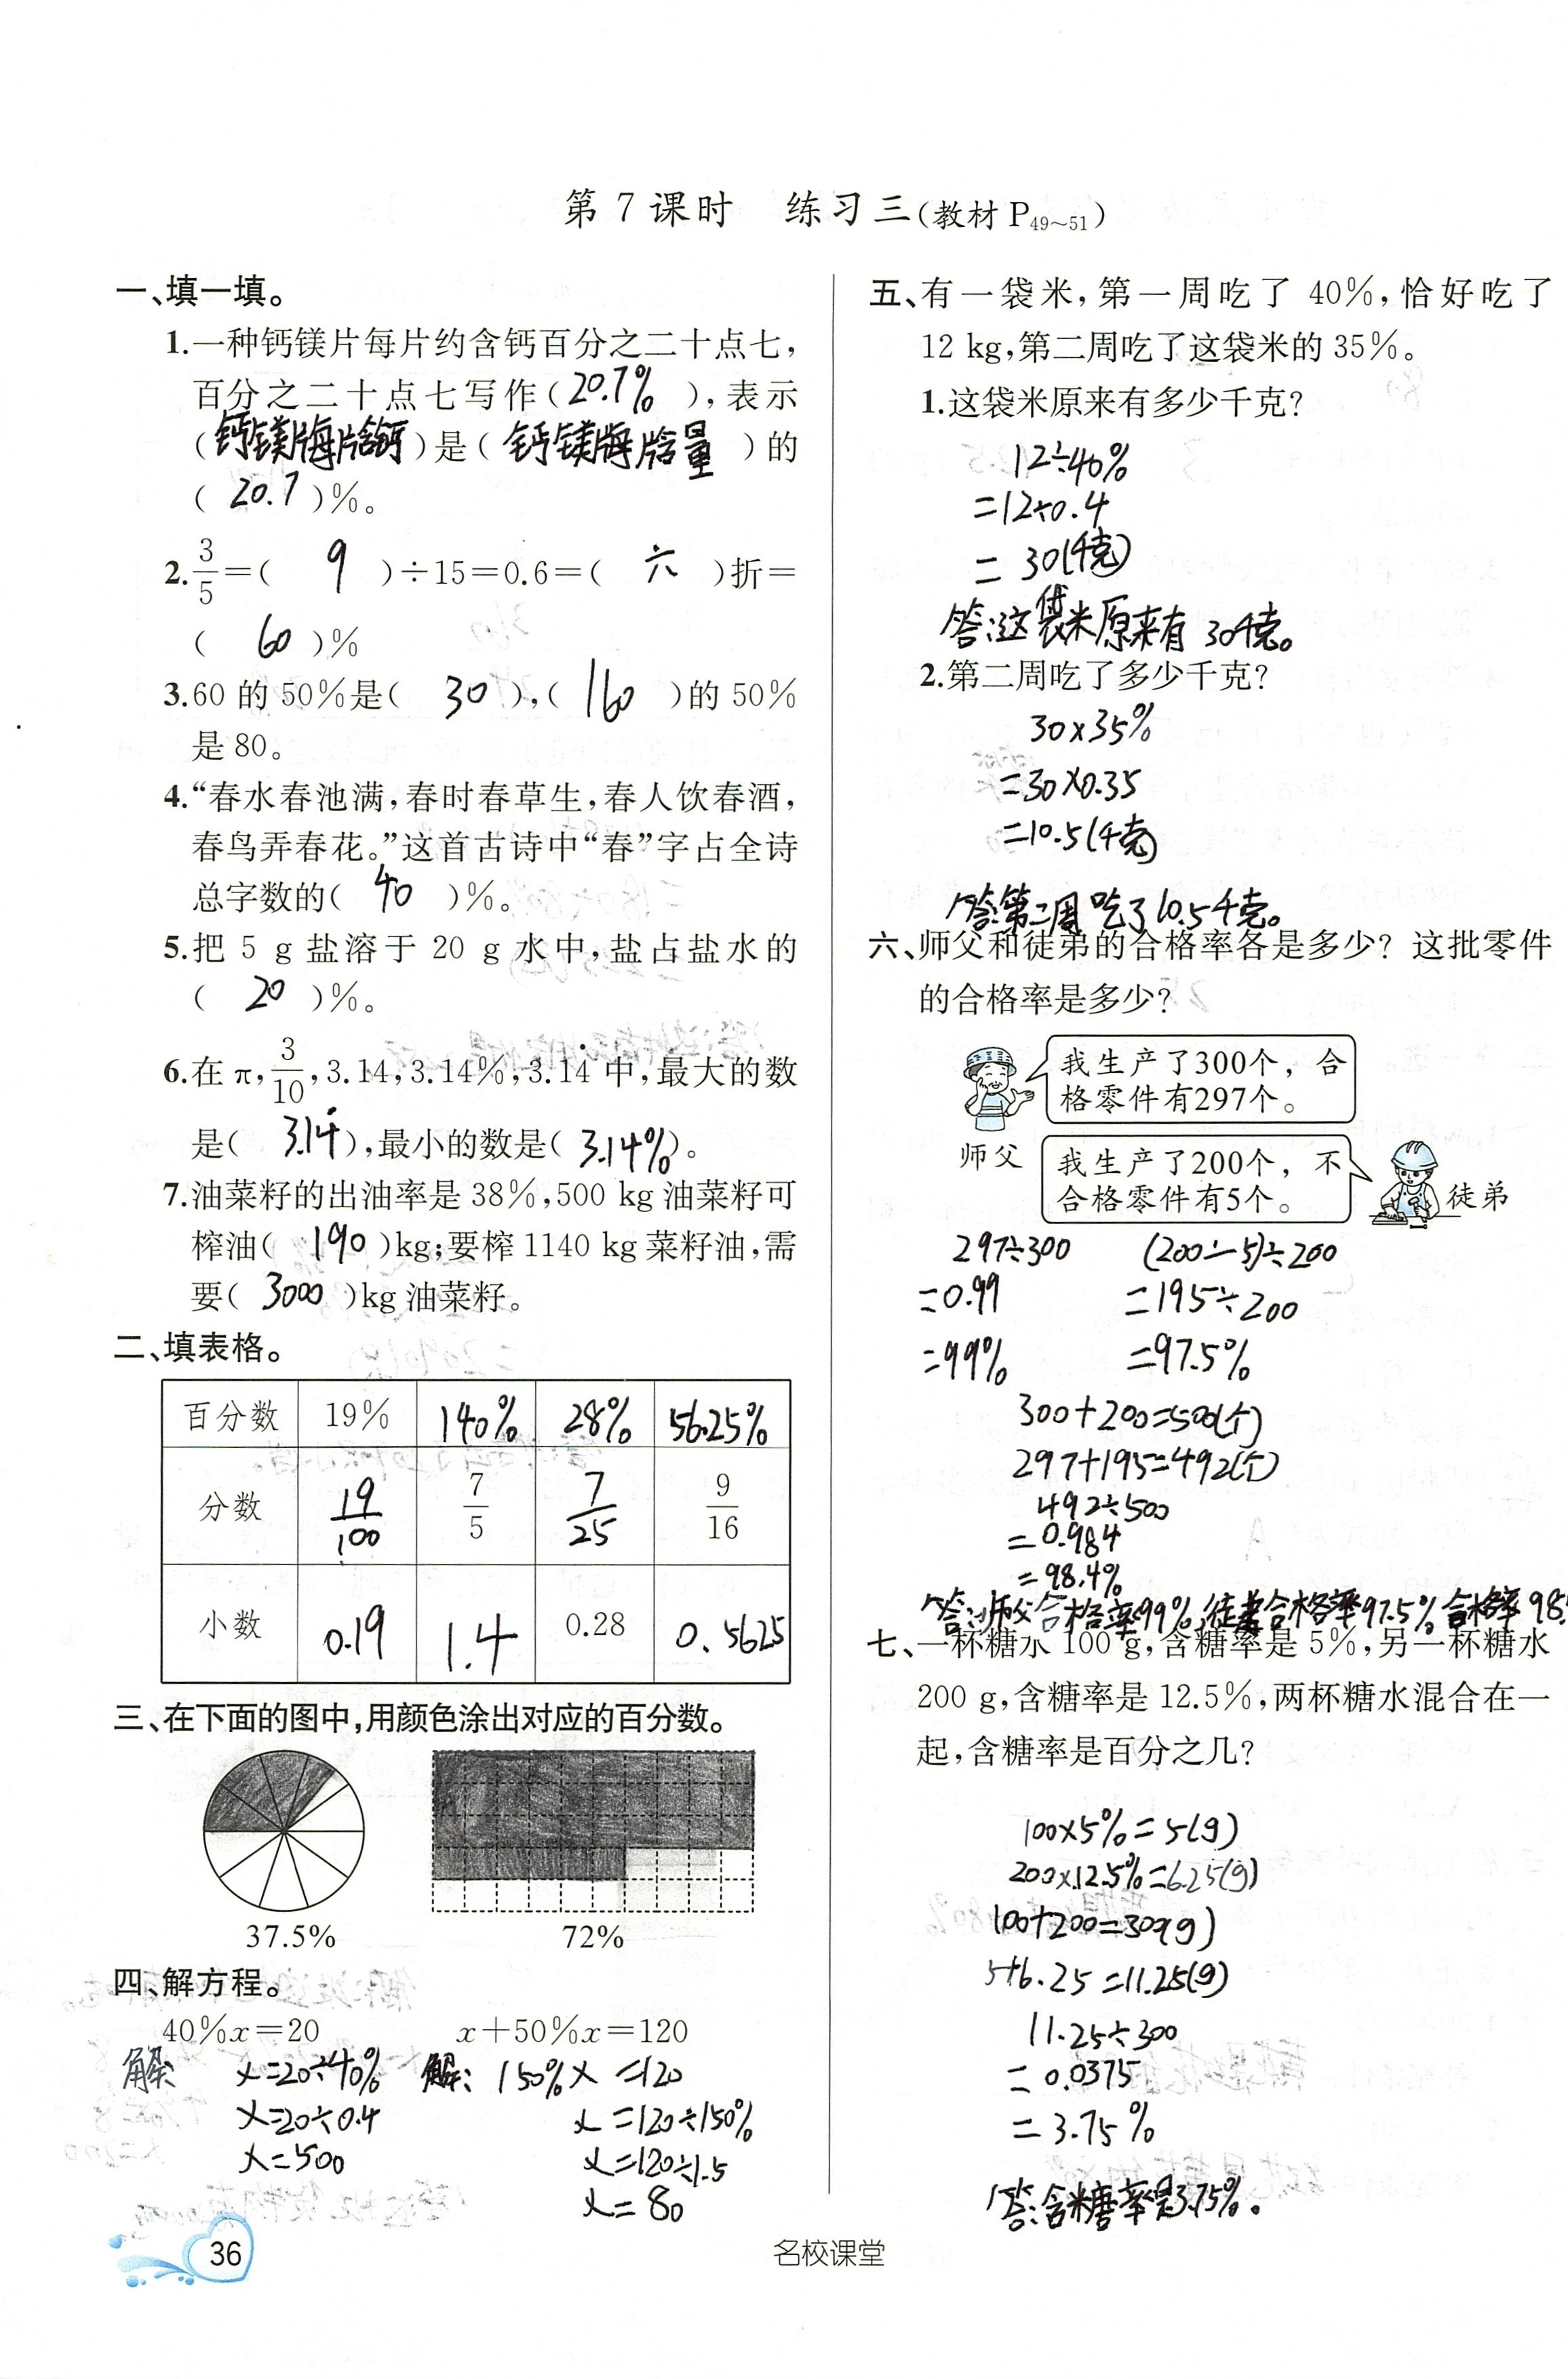 第 7 课时 练习三(教材 P49~51)
一、填一填。
1.一种钙镁片每片约含钙百分之二十点七,
百分之二十点七写作( 20.7% ),表示
(钙镁片每片含钙)是( 钙镁片每片含量 )的
( 20.7 )%。
2. 3/5 =( 9 )÷15=0.6=( 六 )折=
( 60 )%
3.60 的 50%是( 30 ),( 160 )的 50%
是 80。
4.“春水春池满,春时春草生,春人饮春酒,
春鸟弄春花。”这首古诗中“春”字占全诗
总字数的( 40 )%。
5.把 5 g 盐溶于 20 g 水中,盐占盐水的
( 20 )%。
6.在 π, 3/10 ,3.14,3.14%,3.14̇ 中,最大的数
是( 3.14̇ ),最小的数是( 3.14% )。
7.油菜籽的出油率是 38%,500 kg 油菜籽可
榨油( 190 )kg;要榨 1140 kg 菜籽油,需
要( 3000 )kg 油菜籽。
二、填表格。
百分数 19% 140% 28% 56.25%
分数 19/100 7/5 7/25 9/16
小数 0.19 1.4 0.28 0.5625
三、在下面的图中,用颜色涂出对应的百分数。
37.5% 72%
四、解方程。
40%x=20 x+50%x=120
解: x=20÷40% 解: 150%x=120
x=20÷0.4 x=120÷150%
x=500 x=120÷1.5
x=80
36
五、有一袋米,第一周吃了 40%,恰好吃了
12 kg,第二周吃了这袋米的 35%。
1.这袋米原来有多少千克?
12÷40%
=12÷0.4
= 30(千克)
答:这袋米原来有 30千克。
2.第二周吃了多少千克?
30×35%
=30×0.35
=10.5(千克)
答:第二周吃了10.5千克。
六、师父和徒弟的合格率各是多少? 这批零件
的合格率是多少?
我生产了300个,合
格零件有297个。
师父
我生产了200个,不
合格零件有5个。
徒弟
297÷300 (200-5)÷200
=0.99 =195÷200
=99% =97.5%
300+200=500(个)
297+195=492(个)
492÷500
=0.984
=98.4%
答:师父合格率99%,徒弟合格率97.5%,合格率98.
七、一杯糖水 100 g,含糖率是 5%,另一杯糖水
200 g,含糖率是 12.5%,两杯糖水混合在一
起,含糖率是百分之几?
100×5%=5(g)
200×12.5%=6.25(g)
100+200=300(g)
5+6.25=11.25(g)
11.25÷300
= 0.0375
= 3.75%
答:含糖率是3.75%。
名校课堂